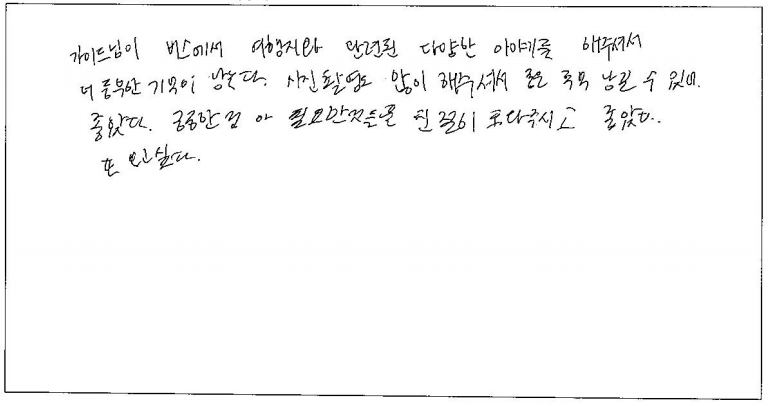 가이드님이 버스에서 여행지와 관련된 다양한 이야기를 해주셔서
더 풍부한 기억이 남는다. 사진 촬영도 많이 해주셔서 좋은 추억 남길 수 있어
좋았다. 궁금한 점 아 필요한것들을 친절히 도와주시고 좋았다.
또 오고싶다.